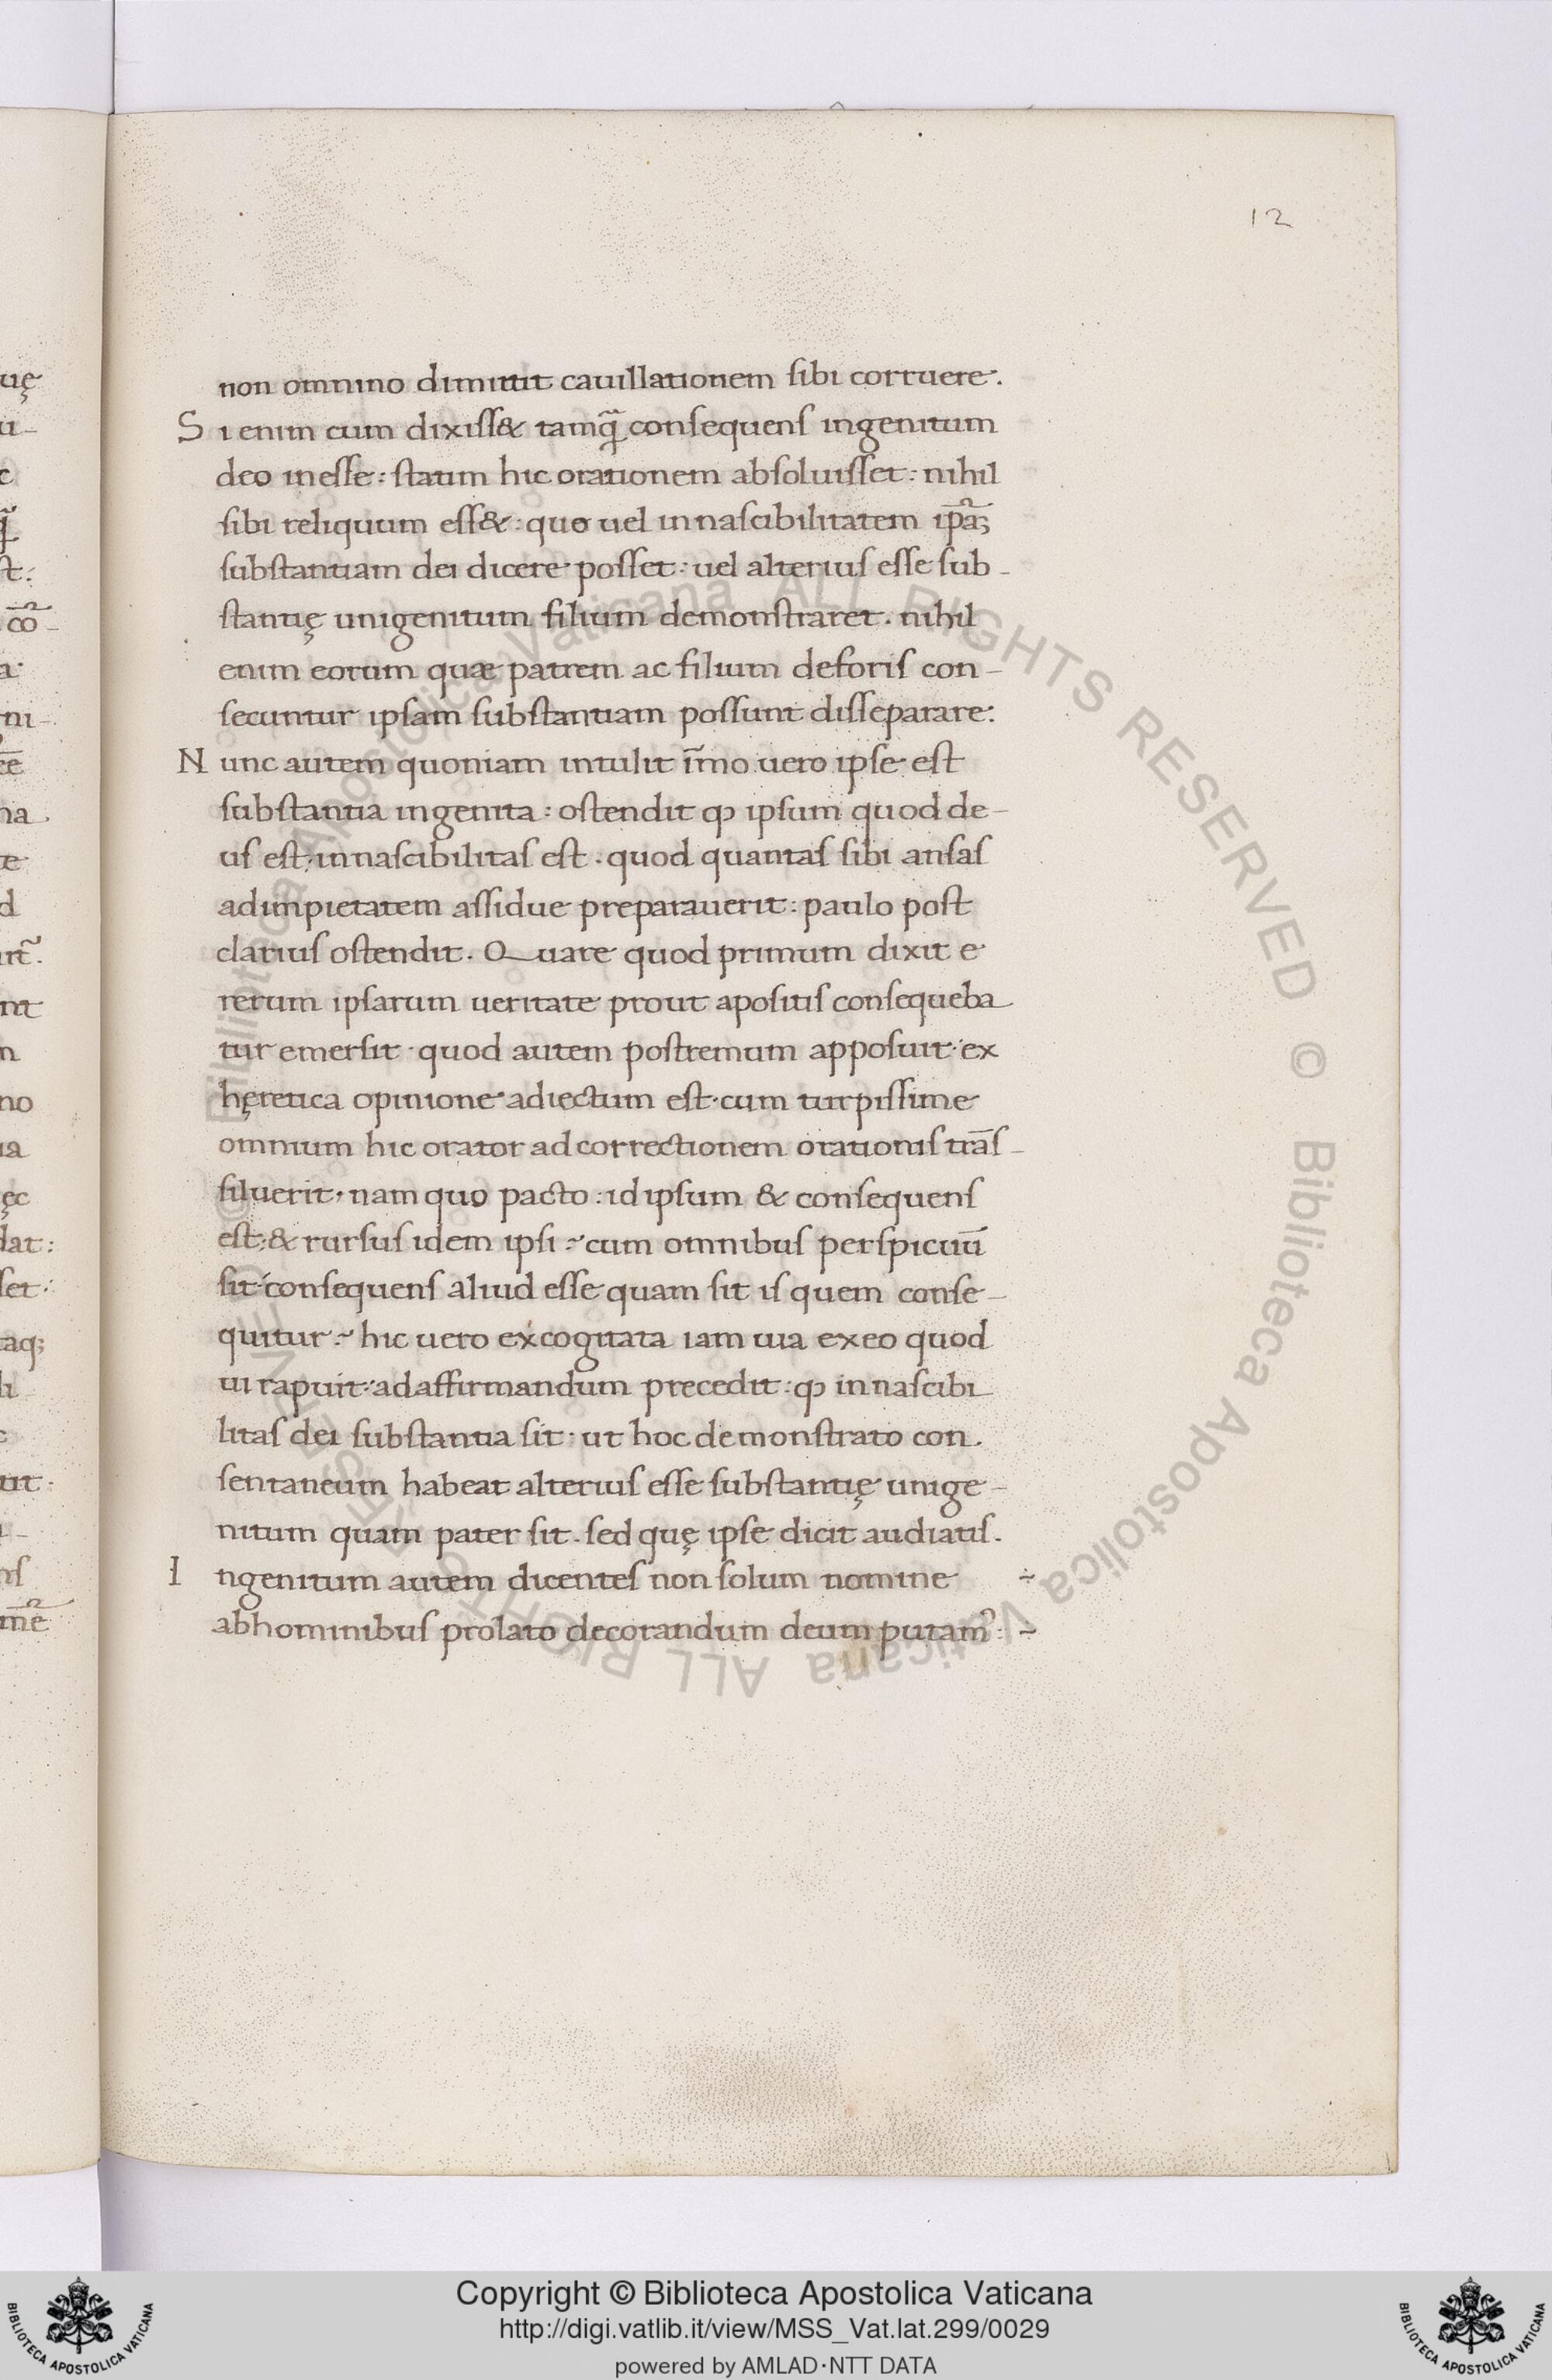 12
non omnino dimittit cauillationem sibi corruere.
Si enim cum dixiss& tamq̃ consequens ingenitum
deo inesse: statim hic orationem absoluisset: nihil
sibi reliquum ess&: quo uel innascibilitatem ip̃a;
substantiam dei dicere posset: uel alterius esse sub-
stantię unigenitum filium demonstraret. nihil
enim eorum quæ patrem ac filium deforis con-
secuntur ipsam substantiam possunt disseparare:
Nunc autem quoniam intulit im̃o uero ipse est
substantia ingenita: ostendit ꝙ ipsum quod de-
us est innascibilitas est. quod quantas sibi ansas
ad impietatem assidue preparauerit: paulo post
clarius ostendit. Quare quod primum dixit e
rerum ipsarum ueritate prout apositis consequeba
tur emersit. quod autem postremum apposuit ex
hęretica opinione adiectum est. cum turpissime
omnium hic orator ad correctionem orationis trãs-
siluerit. nam quo pacto: id ipsum & consequens
est; & rursus idem ipsi: cum omnibus perspicuũ
sit consequens aliud esse quam sit is quem conse-
quitur: hic uero excogitata iam uia ex eo quod
ui rapuit: ad affirmandum precedit: ꝙ innascibi
litas dei substantia sit. ut hoc demonstrato con.
sentaneum habeat alterius esse substantię unige-
nitum quam pater sit. sed quę ipse dicit audiatis.
Ingenitum autem dicentes non solum nomine ~
ab hominibus prolato decorandum deum putam᾽: ~
© Biblioteca Apostolica Vaticana ALL RIGHTS RESERVED © Biblioteca Apostolica Vaticana ALL RIGHTS RESERVED
Copyright © Biblioteca Apostolica Vaticana
http://digi.vatlib.it/view/MSS_Vat.lat.299/0029
powered by AMLAD·NTT DATA
BIBLIOTECA APOSTOLICA VATICANA
BIBLIOTECA APOSTOLICA VATICANA